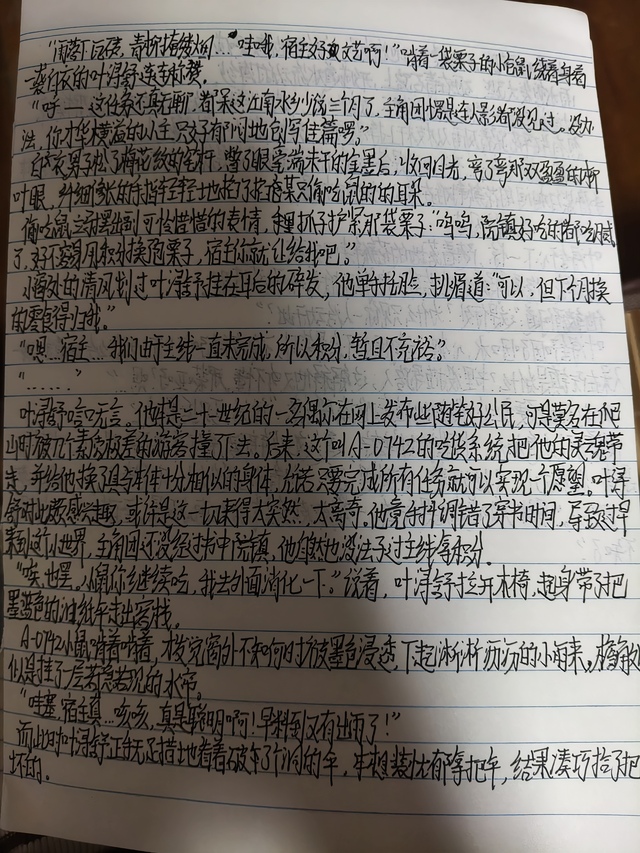 “雨落下石磕,青杯掩绕烟…哇哦,宿主好文艺啊!”啃着一袋栗子的小仓鼠绕着身着
一袭白衣的叶浔舒连连称赞。
“呼——这任务不真无聊,都呆这江南水乡少说三个月了,主角团愣是连人影都没见过。没办
法,你才华横溢的小主只好有郁闷地创写佳篇啰。”
白衣男子松了梅花纹的笔杆,瞥了眼毫端未干的金墨后,收回目光,弯了弯那双盈盈的柳
叶眼,纤细修长的手指轻轻地拍了拍某只偷吃鼠的的耳朵。
偷吃鼠立刻摆出可怜惜惜的表情,手里抓子护紧那袋栗子:“呜呜,阮镇好吃的都吃腻
了,好不容易用积分换抱栗子,宿主你就让给我吧。”
小窗外的清风划过叶浔舒挂在耳后的碎发,他单手托脸,挑眉道:“可以,但下个月换
的零食得归我。”
“嗯…宿主…我们由于主线一直未完成,所以积分,暂且不充裕。”
“……”
叶浔舒哑口无言。他本是二十一世纪的一名偶尔在网上发布些随笔好公民,可是莫名在爬
山时被几个素质极差的游客撞了下去。后来,这个叫A-0742的吃货系统把他的灵魂带
走,并给他换了具与本体十分相似的身体,允若只要完成所有任务就可以实现一个愿望。叶浔
舒对此颇感兴趣,或许是这一切来得太突然,太离奇。他竟手抖调错了穿书时间,导致过早
来到这个小世界,主角团还没经过书中阮镇,他自然也没法子过主线拿积分。
“唉,也罢。小鼠你继续吃,我去外面消化一下。”说着,叶浔舒拉开木椅,起身带了把
墨蓝色的油纸伞走出客栈。
A-0742小鼠啃着啃着,才发觉窗外不知何时被墨色浸透,下起淅淅沥沥的小雨来。
似是挂了一层若隐若现的水帘。
“哇塞,宿主真…咳咳,真是聪明啊!早料到又有出雨了!”
而此时叶浔舒正手无足措地看着破了个洞的伞,本想装忧郁拿把伞,结果凑巧拾了把
坏的。